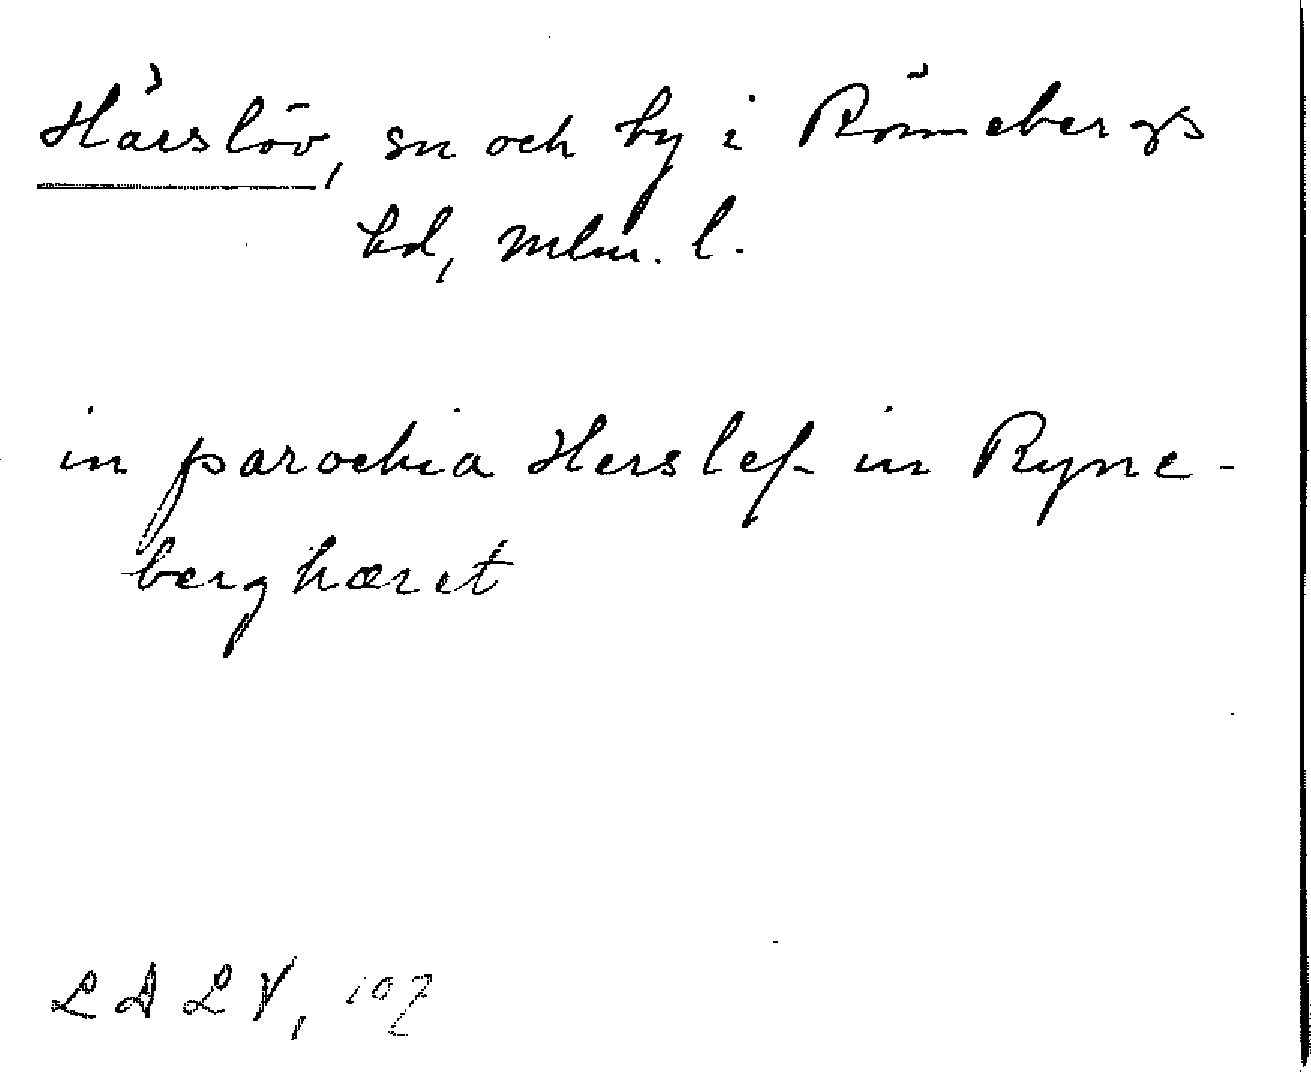 Härslöv, sn och by i Rönnebergs
hd, Mlm. l.
in parochia Herslef in Ryne-
berghæret
LDLV, 107